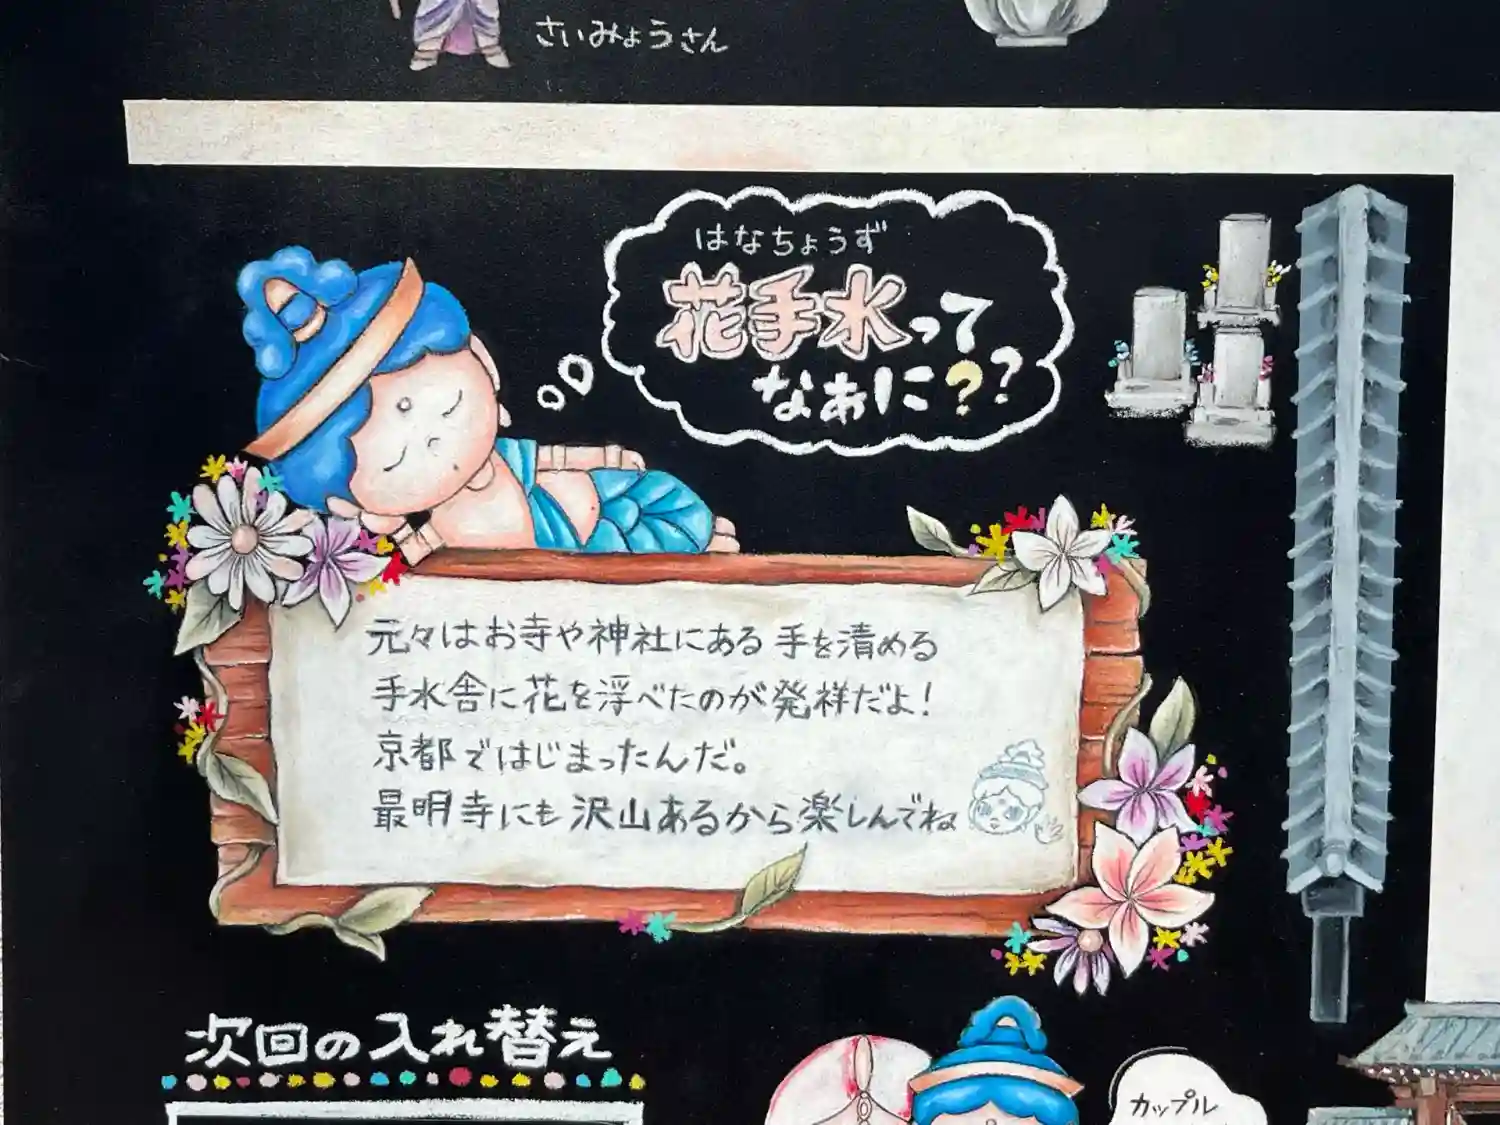 さいみょうさん
はなちょうず
花手水って
なぁに??
元々はお寺や神社にある 手を清める
手水舎に花を浮べたのが発祥だよ!
京都ではじまったんだ。
最明寺にも沢山あるから楽しんでね
次回の入れ替え
カップル